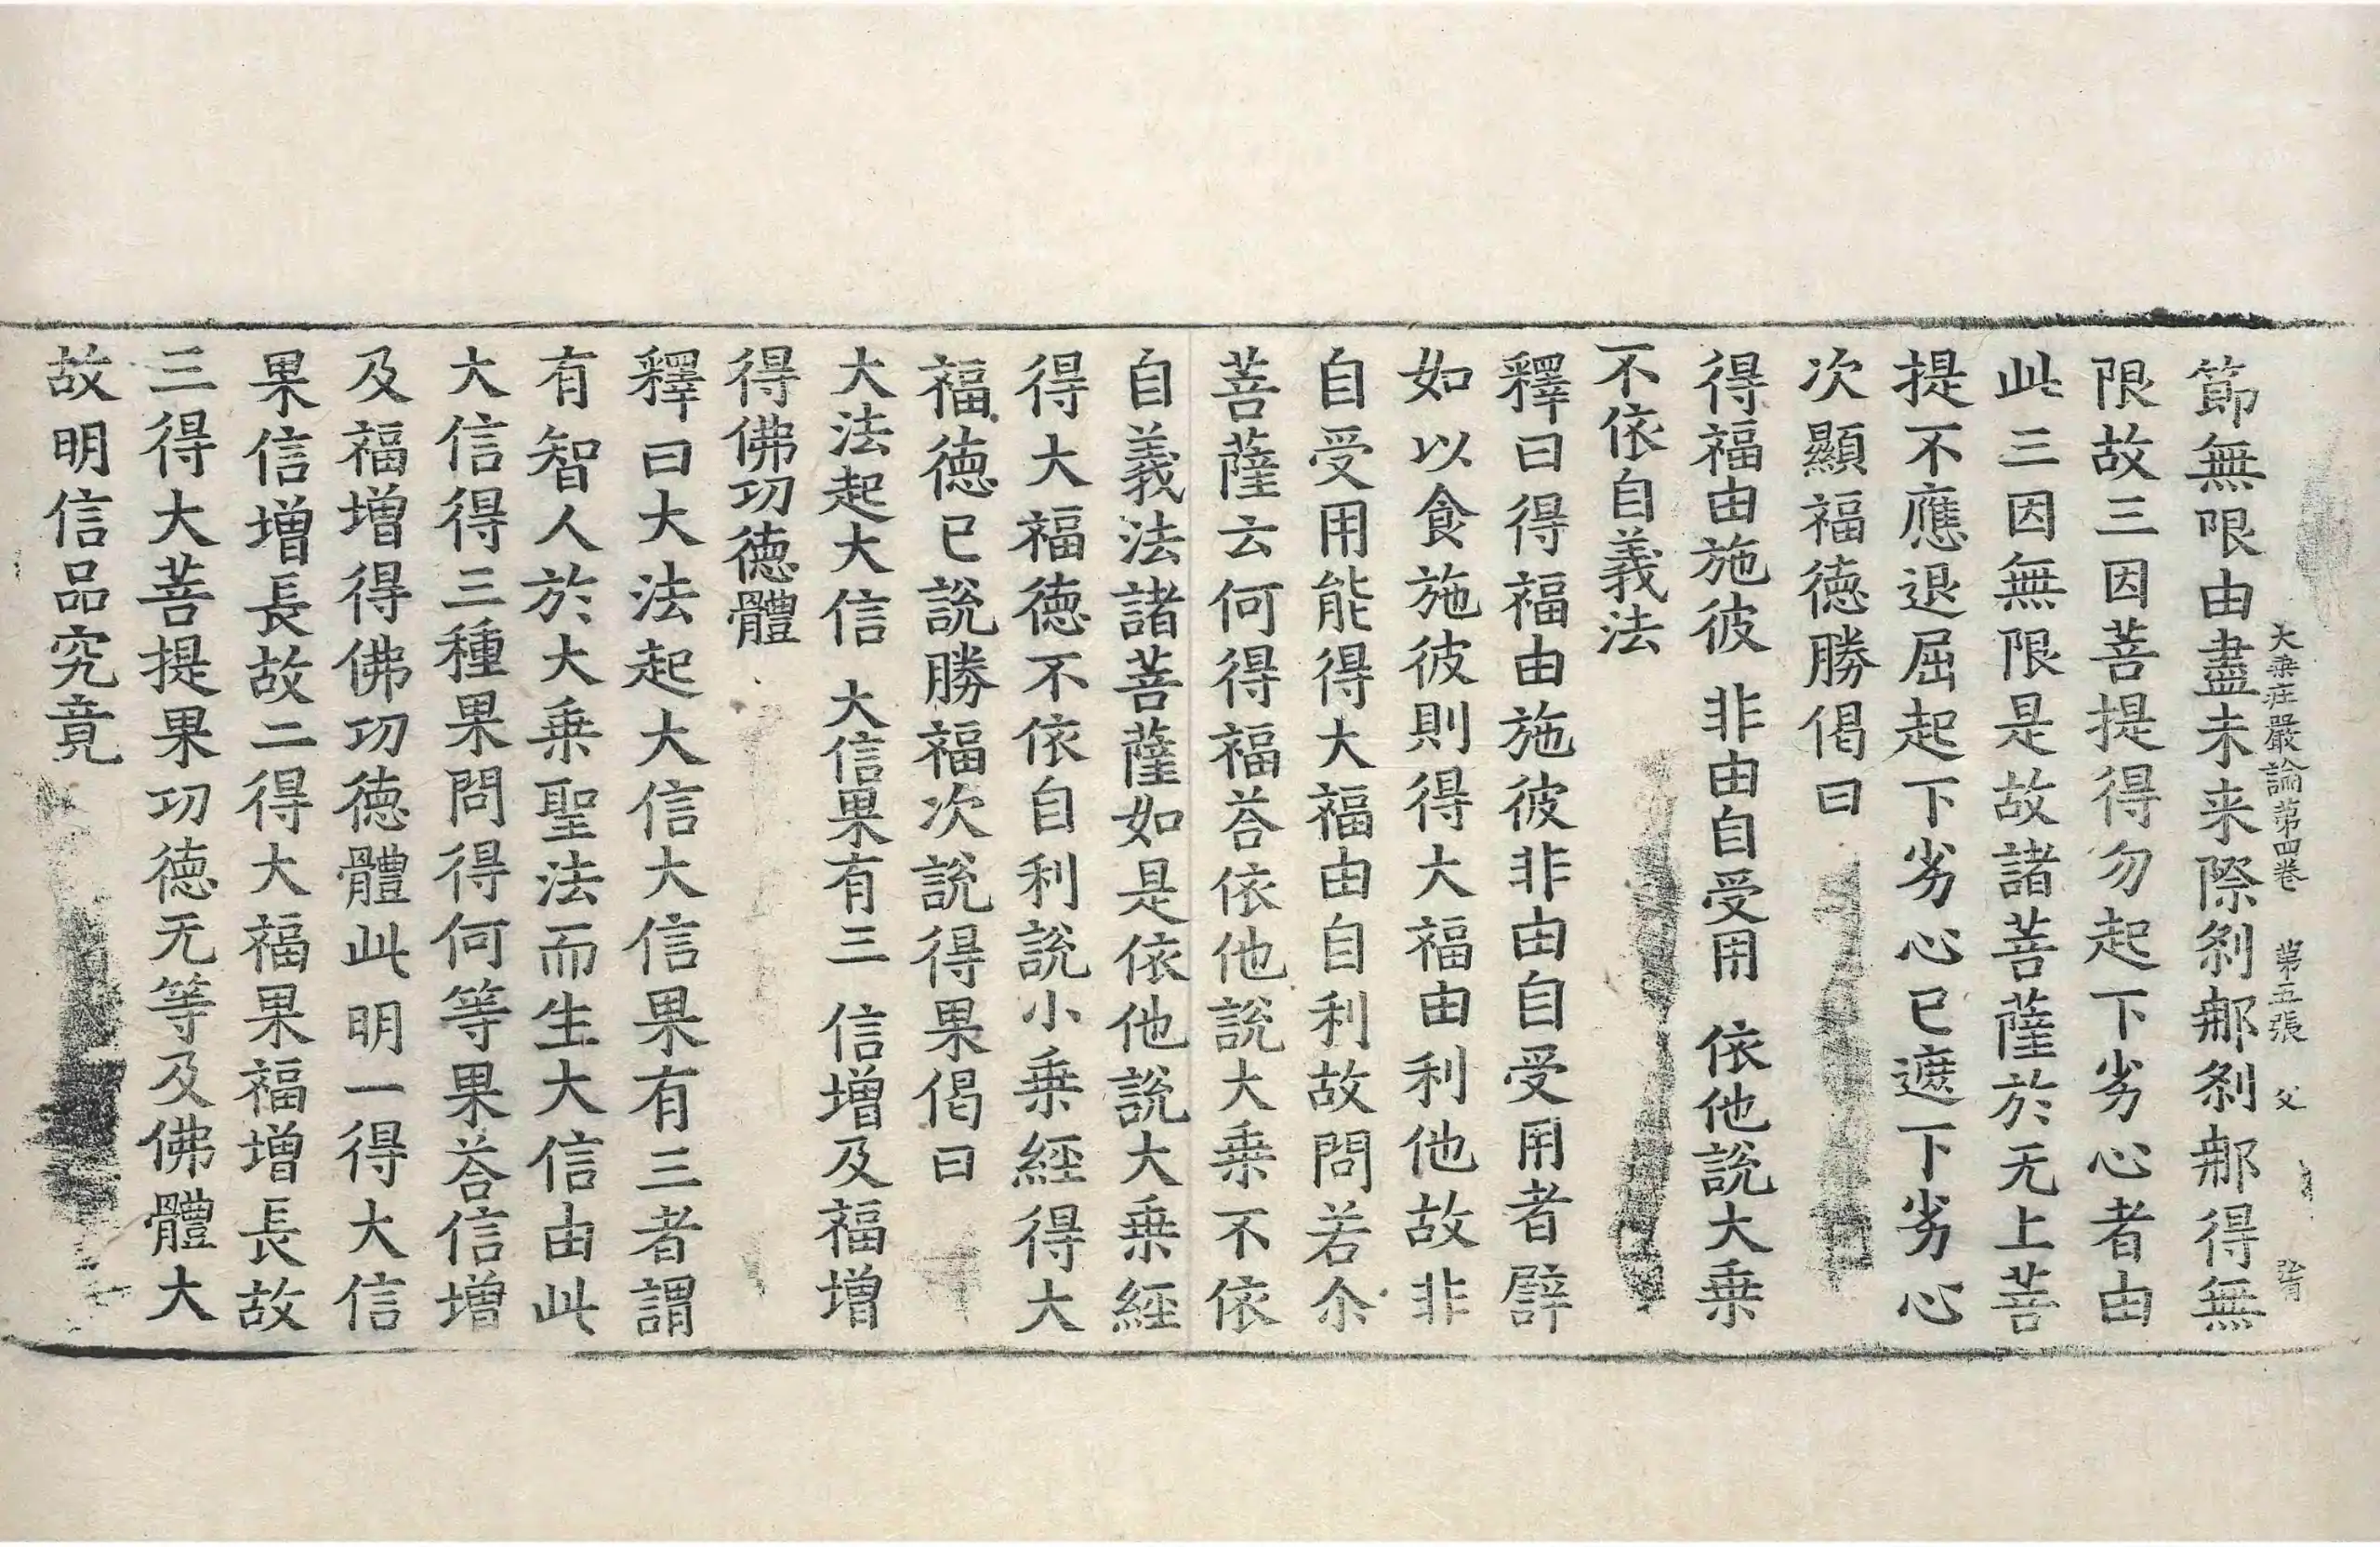 大乘庄嚴論第四卷 第五張 父
節無限由盡未来際剎郍剎郍得無
限故三因菩提得勿起下劣心者由
此三因無限是故諸菩薩於无上菩
提不應退屈起下劣心已遮下劣心
次顯福德勝偈曰
得福由施彼 非由自受用 依他説大乗
不依自義法
釋曰得福由施彼非由自受用者譬
如以食施彼則得大福由利他故非
自受用能得大福由自利故問若尒
菩薩云何得福荅依他說大乗不依
自義法諸菩薩如是依他說大乗經
得大福德不依自利說小乗經得大
福德已說勝福次說得果偈曰
大法起大信 大信果有三 信增及福增
得佛功德體
釋曰大法起大信大信果有三者謂
有智人於大乗聖法而生大信由此
大信得三種果問得何等果荅信增
及福增得佛功德體此明一得大信
果信增長故二得大福果福增長故
三得大菩提果功德无等及佛體大
故明信品究竟